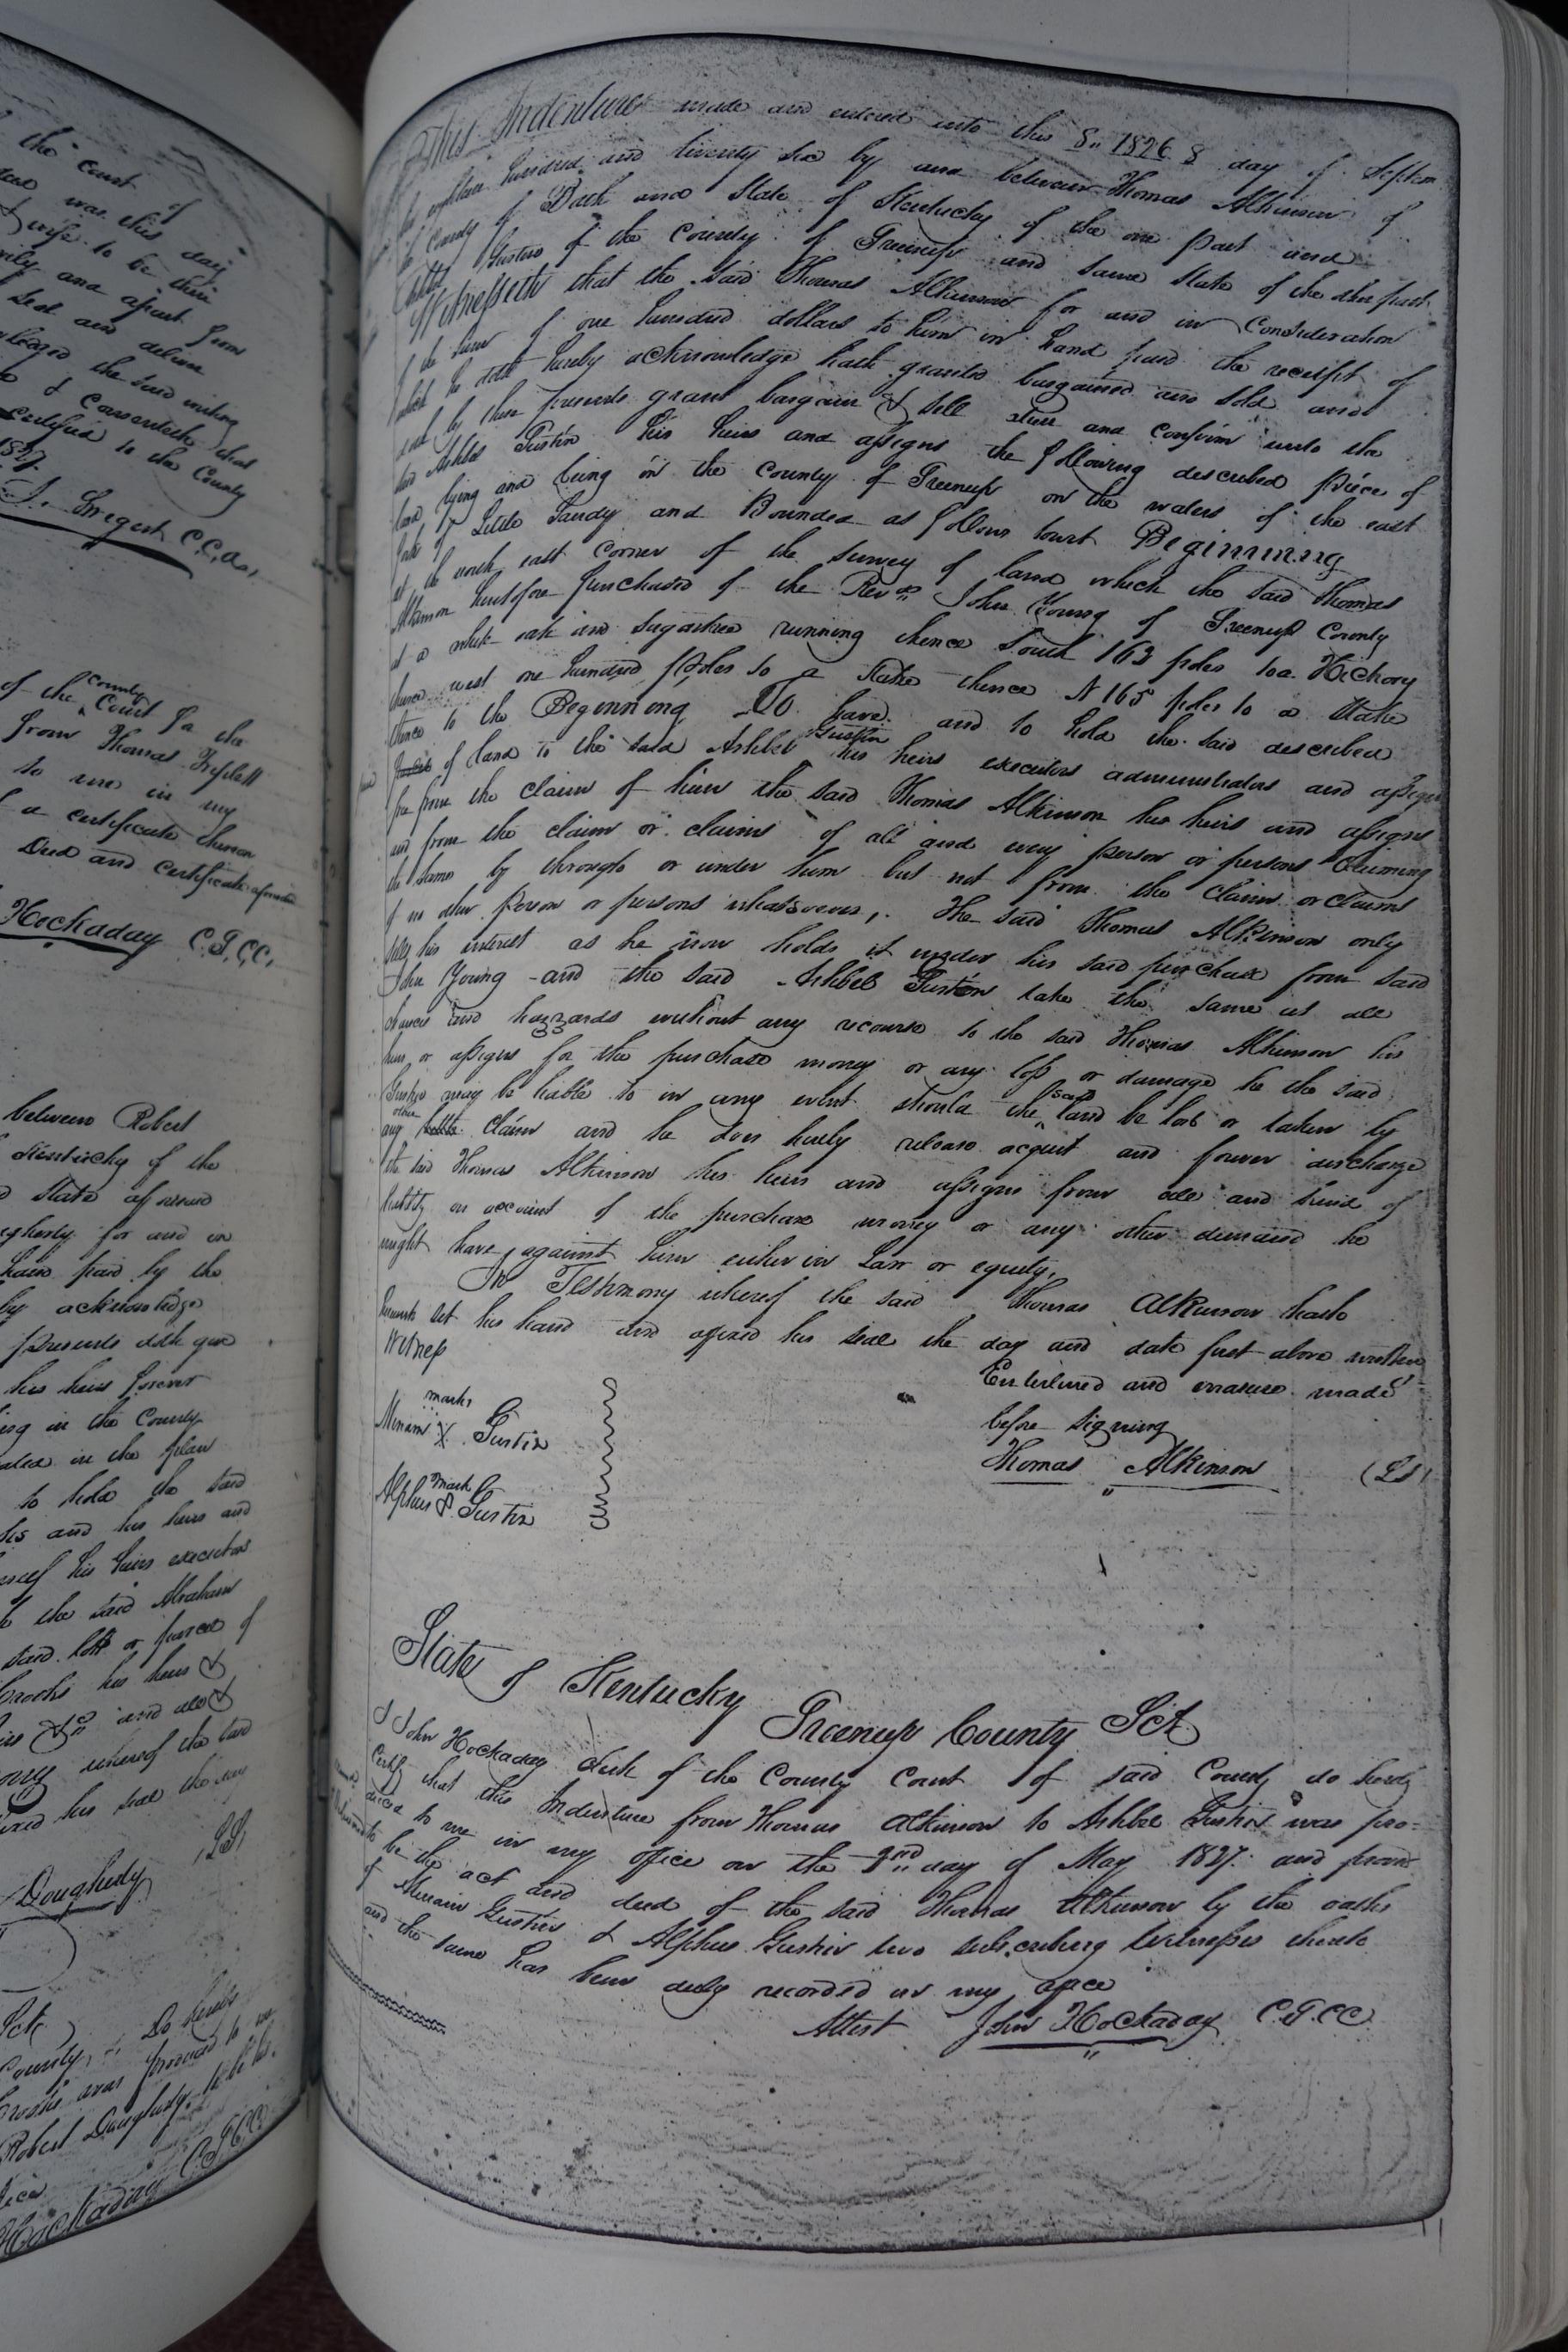 the Court of
was this day
wife to be their
and apart from
seal and deliver
the said writing
& Consenteth that
Certified to the County
1827.
C.C.C.
of the county Court for the
from Thomas Triplett
to me in my
a certificate thereon
Deed and certificate aforesaid
Hockaday C.G.C.C.
between Robert
Kentucky of the
State aforesaid
for and in
paid by the
acknowledge
presents doth give
his heirs forever
in the County
in the plan
to hold the said
and his heirs and
his heirs executors
to the said Abraham
said lott or parcel of
his heirs &
and all &
whereof the said
his seal the day
(LS)
Dougherty
Sct
County, Do hereby
was produced to me
Robert Dougherty to be his
Hockaday C.G.C.C.
This Indenture made and entered into this 8" 1826 8 day of Septem
eighteen hundred and twenty six by and between Thomas Atkinson of
County of Bath and State of Kentucky of the one part and
Gustin of the County of Greenup and same State of the other part
Witnesseth that the said Thomas Atkinson for and in Consideration
of the sum of one hundred dollars to him in hand paid the receipt of
which he doth hereby acknowledge hath granted bargained and sold and
by these presents grant bargain & sell and confirm unto the
said Ashbel Gustin his heirs and assigns the following described piece of
land lying and being in the County of Greenup on the waters of the east
fork of Little Sandy and Bounded as follows towit Beginning
at the north east corner of the survey of land which the said Thomas
Atkinson heretofore purchased of the Revd John Young of Greenup County
at a white oak and sugartree running thence South 163 poles to a Hickory
thence west one hundred poles to a Stake thence N 165 poles to a Stake
thence to the Beginning To have and to hold the said described
of land to the said Ashbel Gustin his heirs executors administrators and assigns
free from the claim of him the said Thomas Atkinson his heirs and assigns
and from the claim or claims of all and every person or persons Claiming
the same by through or under him but not from the claim or claims
of no other person or persons whatsoever, The said Thomas Atkinson only
sells his interest as he now holds it under his said purchase from said
John Young and the said Ashbel Gustin take the same at all
chances and hazzards without any recourse to the said Thomas Atkinson his
heirs or assigns for the purchase money or any loss or damage he the said
Gustin may be liable to in any event should the said land be lost or taken by
any other claim and he does hereby release acquit and forever discharge
the said Thomas Atkinson his heirs and assigns from all and kind of
liability on account of the purchase money or any other demand he
might have against him either in Law or equity.
In Testimony whereof the said Thomas Atkinson hath
hereunto set his hand and affixed his seal the day and date first above written
Witness
Enterlined and erasure made
before signing
mark
X Gustin
Thomas Atkinson (LS)
mark
Alpheus Gustin
State of Kentucky
Greenup County Sct
I John Hockaday clerk of the County Court of said County do hereby
Certify that this Indenture from Thomas Atkinson to Ashbel Gustin was pro=
duced to me in my office on the 2nd day of May 1827. and proven
to be the act and deed of the said Thomas Atkinson by the oaths
of Gustin & Alpheus Gustin two subscribing Witnesses thereto
and the same has been duly recorded in my office
Attest John Hockaday C.G.CC.